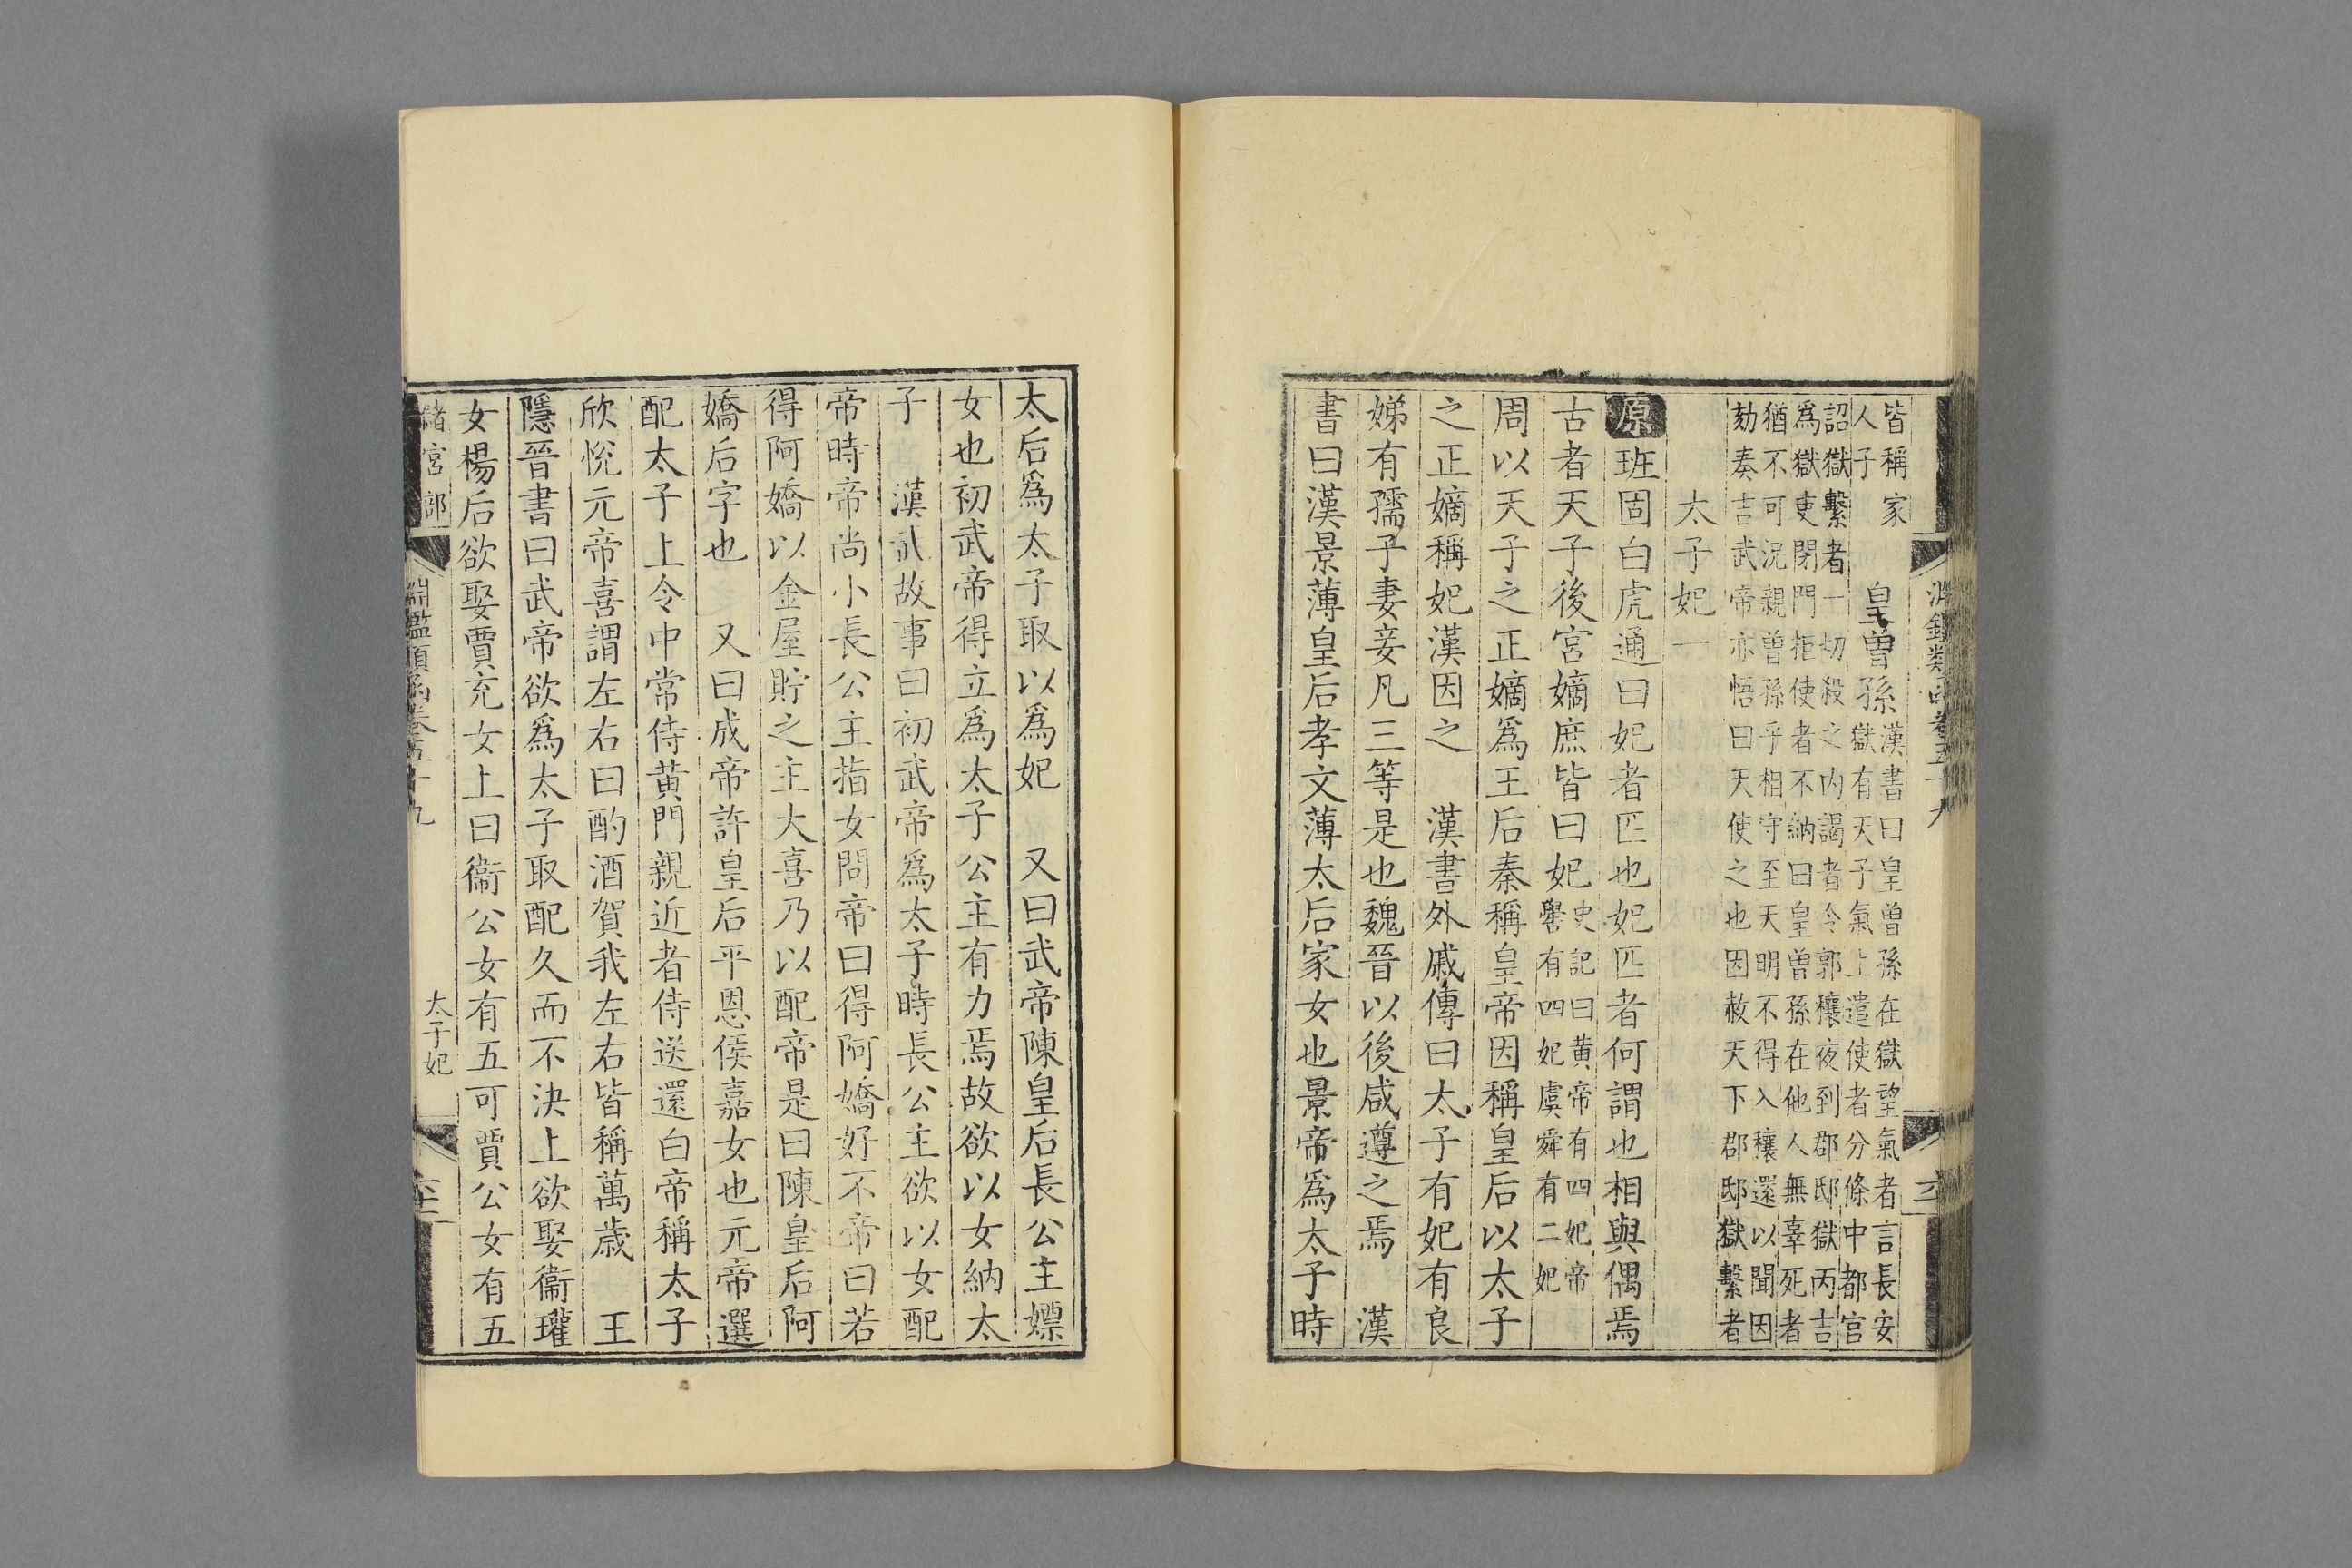 淵鑑類函卷五十九
皆稱家
人子
皇曾孫
漢書曰皇曾孫在獄望氣者言長安
獄有天子氣上遣使者分條中都官
詔獄繫者一切殺之内謁者令郭穰夜到郡邸獄丙吉
爲獄吏閉門拒使者不納曰皇曾孫在他人無辜死者
猶不可況親曾孫乎相守至天明不得入穰還以聞因
劾奏吉武帝亦悟曰天使之也因赦天下郡邸獄繫者
太子妃一
原班固白虎通曰妃者匹也妃匹者何謂也相與偶焉
古者天子後宮嫡庶皆曰妃
史記曰黃帝有四妃帝
嚳有四妃虞舜有二妃
周以天子之正嫡爲王后秦稱皇帝因稱皇后以太子
之正嫡稱妃漢因之　漢書外戚傳曰太子有妃有良
娣有孺子妻妾凡三等是也魏晉以後咸遵之焉　漢
書曰漢景薄皇后孝文薄太后家女也景帝爲太子時
太后爲太子取以爲妃　又曰武帝陳皇后長公主嫖
女也初武帝得立爲太子公主有力焉故欲以女納太
子　漢武故事曰初武帝爲太子時長公主欲以女配
帝時帝尚小長公主指女問帝曰得阿嬌好不帝曰若
得阿嬌以金屋貯之主大喜乃以配帝是曰陳皇后阿
嬌后字也　又曰成帝許皇后平恩侯嘉女也元帝選
配太子上令中常侍黃門親近者侍送還白帝稱太子
欣悅元帝喜謂左右曰酌酒賀我左右皆稱萬歲　王
隱晉書曰武帝欲爲太子取配久而不決上欲娶衞瓘
女楊后欲娶賈充女上曰衞公女有五可賈公女有五
儲宮部
淵鑑類函卷五十九
太子妃